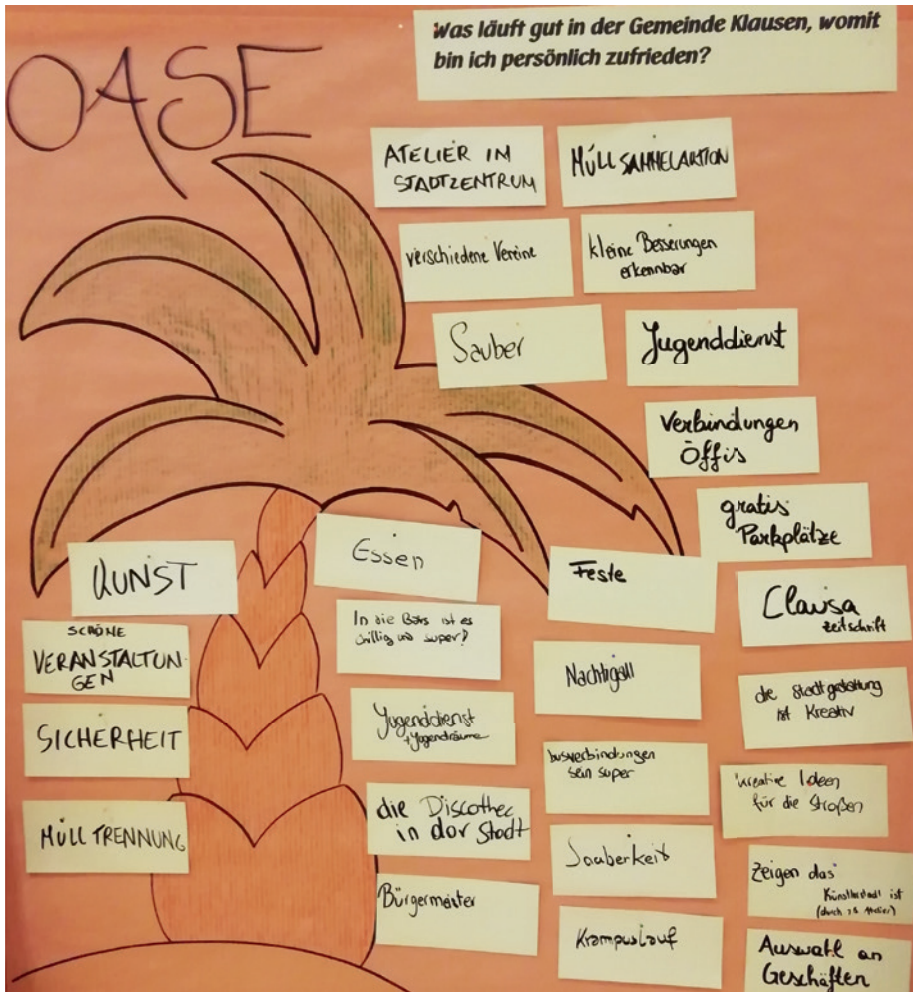 OASE
Was läuft gut in der Gemeinde Klausen, womit
bin ich persönlich zufrieden?
ATELIER IM
STADTZENTRUM
MÜLLSAMMELAKTION
verschiedene Vereine
kleine Besserungen
erkennbar
Sauber
Jugenddienst
Verbindungen
Öffis
gratis
Parkplätze
KUNST
Essen
Feste
Clausa
Zeitschrift
SCHÖNE
VERANSTALTUN-
GEN
In die Bars ist es
chillig und super!
Nachtigall
die Stadtgestaltung
ist Kreativ
SICHERHEIT
Jugenddienst
+Jugendräume
busverbindungen
sein super
kreative Ideen
für die Straßen
MÜLLTRENNUNG
die Discothec
in der Stadt
Sauberkeit
Zeigen das
Künstlerstadt ist
(durch z.B. Atelier)
Bürgermeister
Krampuslauf
Auswahl an
Geschäften